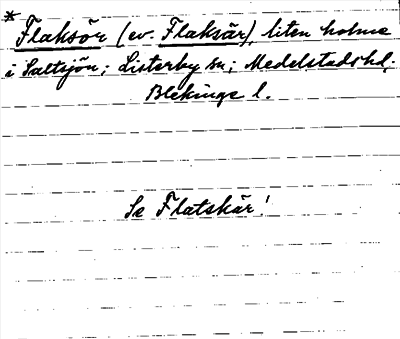 * Flaksör (ev. Flaksär), liten holme
i Saltsjön; Listerby sn; Medelstads hd;
Blekinge l.
Se Flatskär!